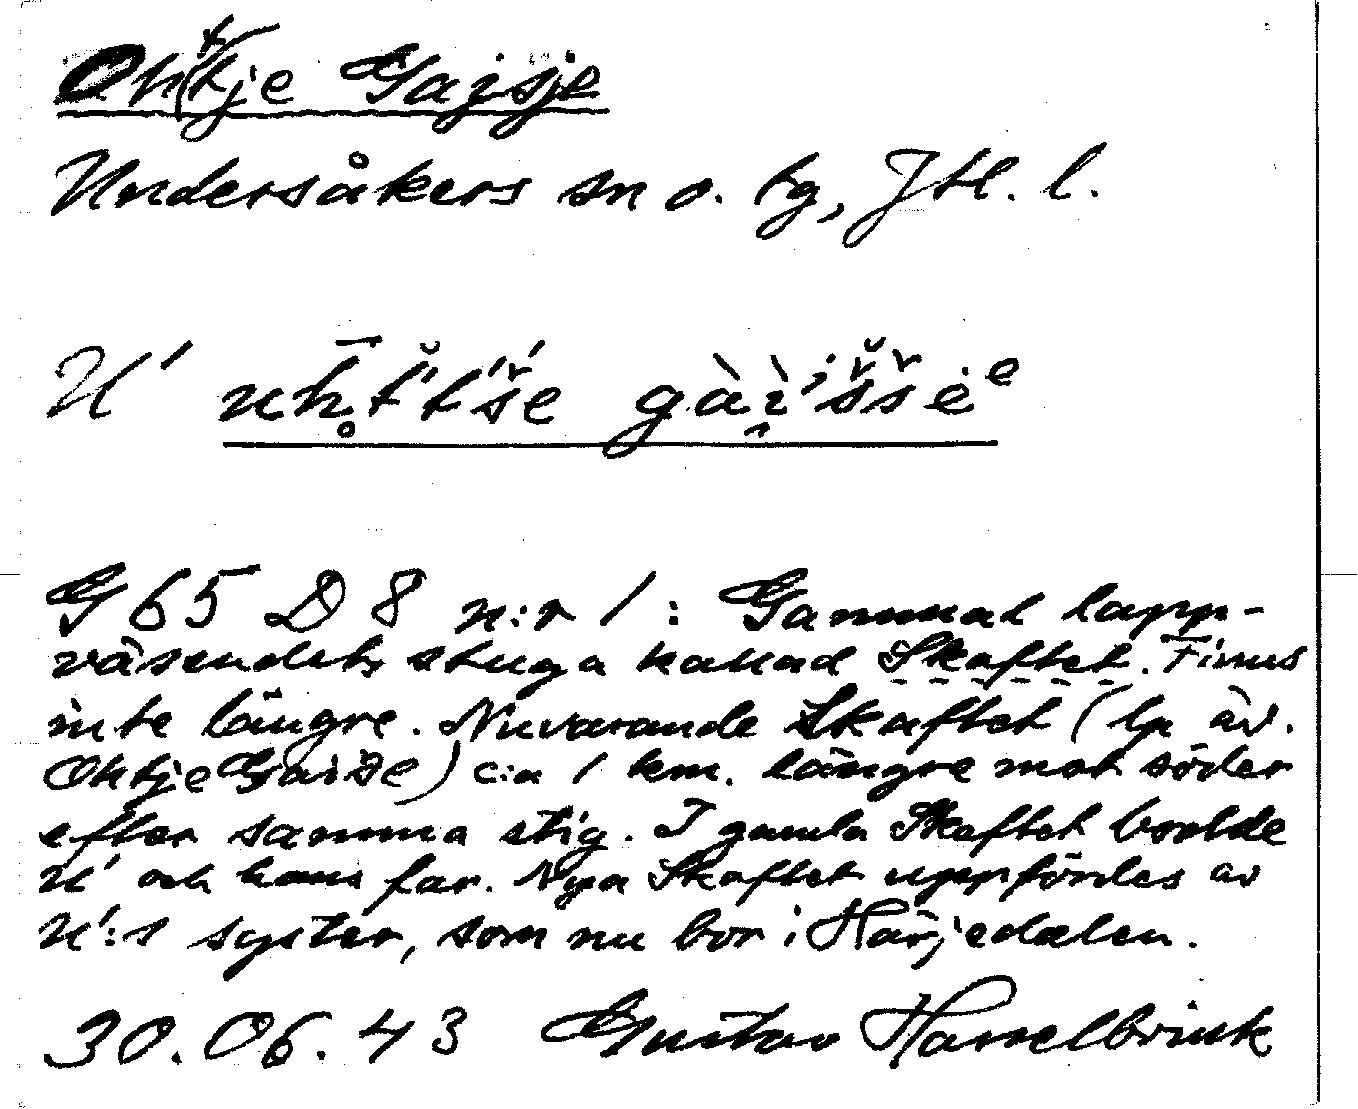 Ohtje Gajsje
Undersåkers sn o. tg, Jtl. l.
N' uh̥̄t̆'t'š́e gàì'š̌šėᵉ
G 65 D 8 n:r 1 : Gammal lapp-
väsendets stuga kallad Skaftet. Finns
inte längre. Nuvarande Skaftet (lp äv.
Ohtje Gaise) c:a 1 km. längre mot söder
efter samma stig. I gamla Skaftet bodde
N' och hans far. Nya Skaftet uppfördes av
N':s syster, som nu bor i Härjedalen.
30.06.43 Gustav Hasselbrink